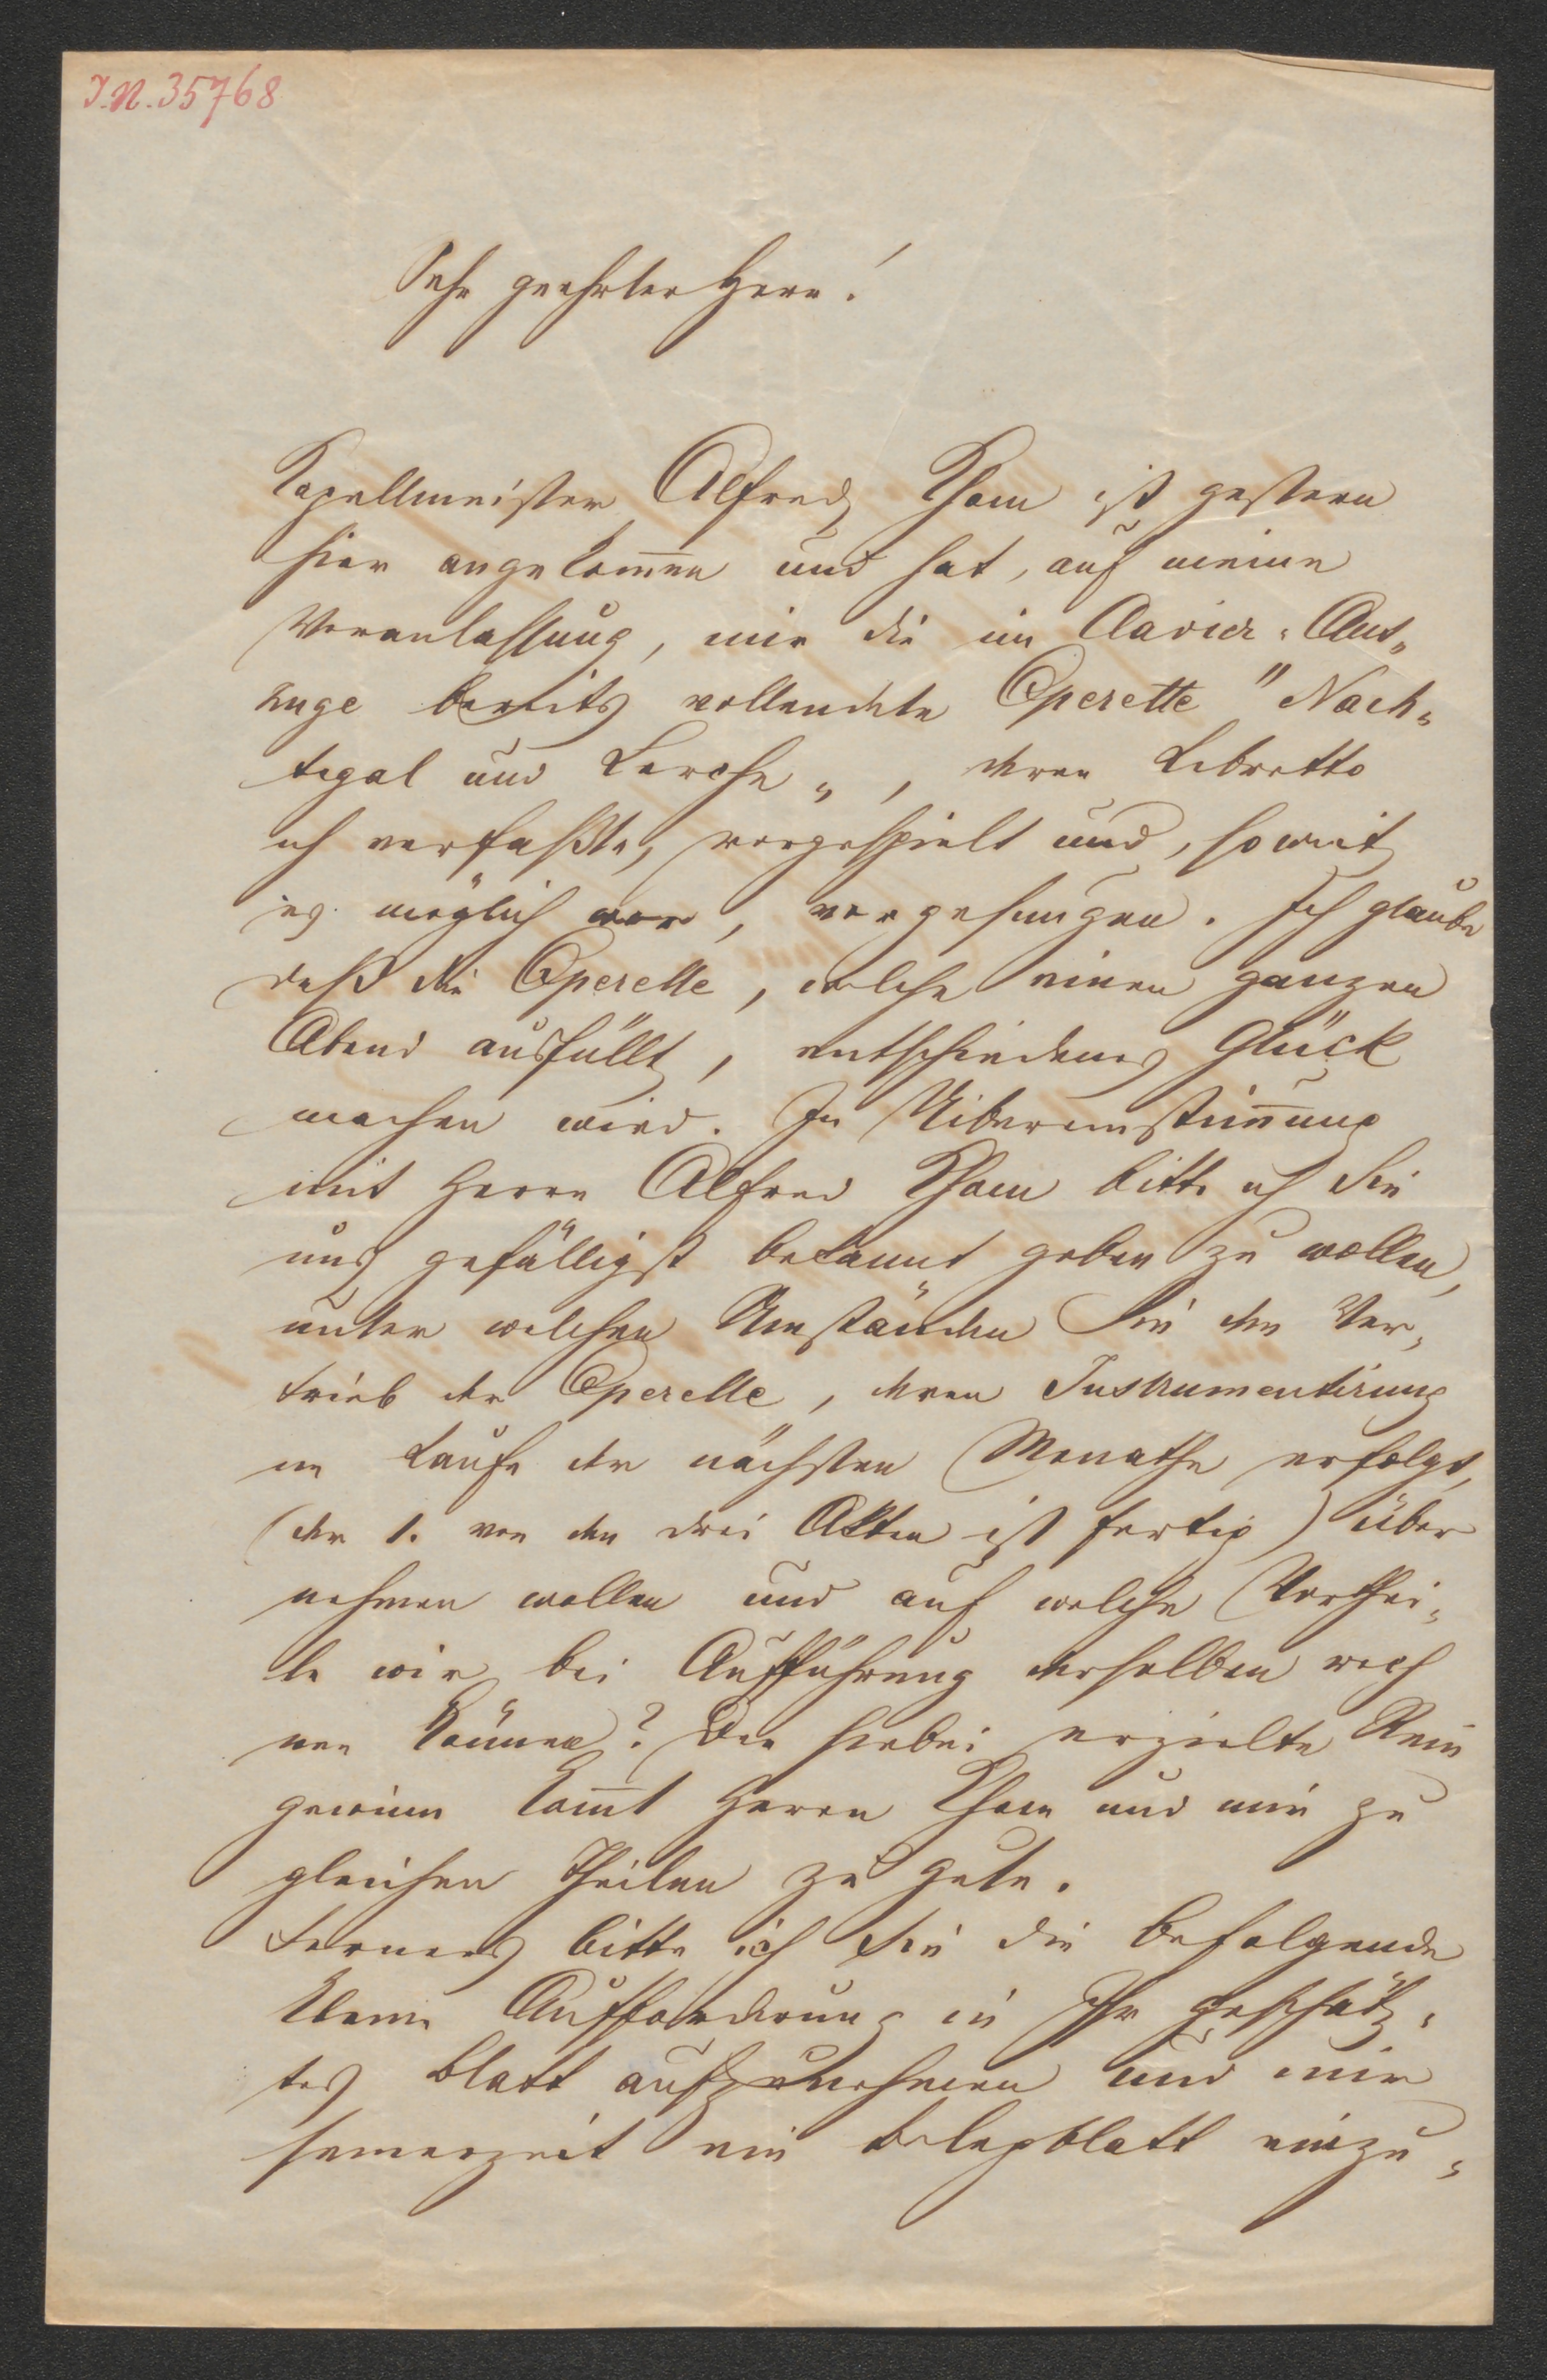 I.N. 35768
Sehr geehrter Herr!
Kapellmeister Alfred Khom ist gestern
hier angekom̄en und hat, auf meine
Veranlassung, mir die im Clavier-Aus-
zuge bereits vollendete Operette "Nach-
tigal und Lerche„, deren Libretto
ich verfaßte, vorgespielt und, soweit
es möglich war, vorgesungen. Ich glaube
daß die Operette, welche einen ganzen
Abend ausfüllt, entschiedenes Glück
machen wird. In Uibereinstim̄ung
mit Herrn Alfred Khom bitte ich Sie
uns gefälligst bekannt geben zu wollen,
unter welchen Umständen Sie den Ver-
trieb der Operette, deren Instrumentirung
im Laufe der nächsten Monathe erfolgt,
(der 1. von den drei Akten ist fertig) über
nehmen wollen und auf welche Vorthei-
le wir bei Aufführung derselben rech
nen können? Der hiebei erzielte Rein
gewinn kom̄t Herrn Khom und mir zu
gleichen Theilen zu gute.
Ferners bitte ich Sie die befolgende
kleine Aufforderung in Ihr geschätz-
tes Blatt aufzunehmen und mir
seinerzeit ein Belegblatt einzu-